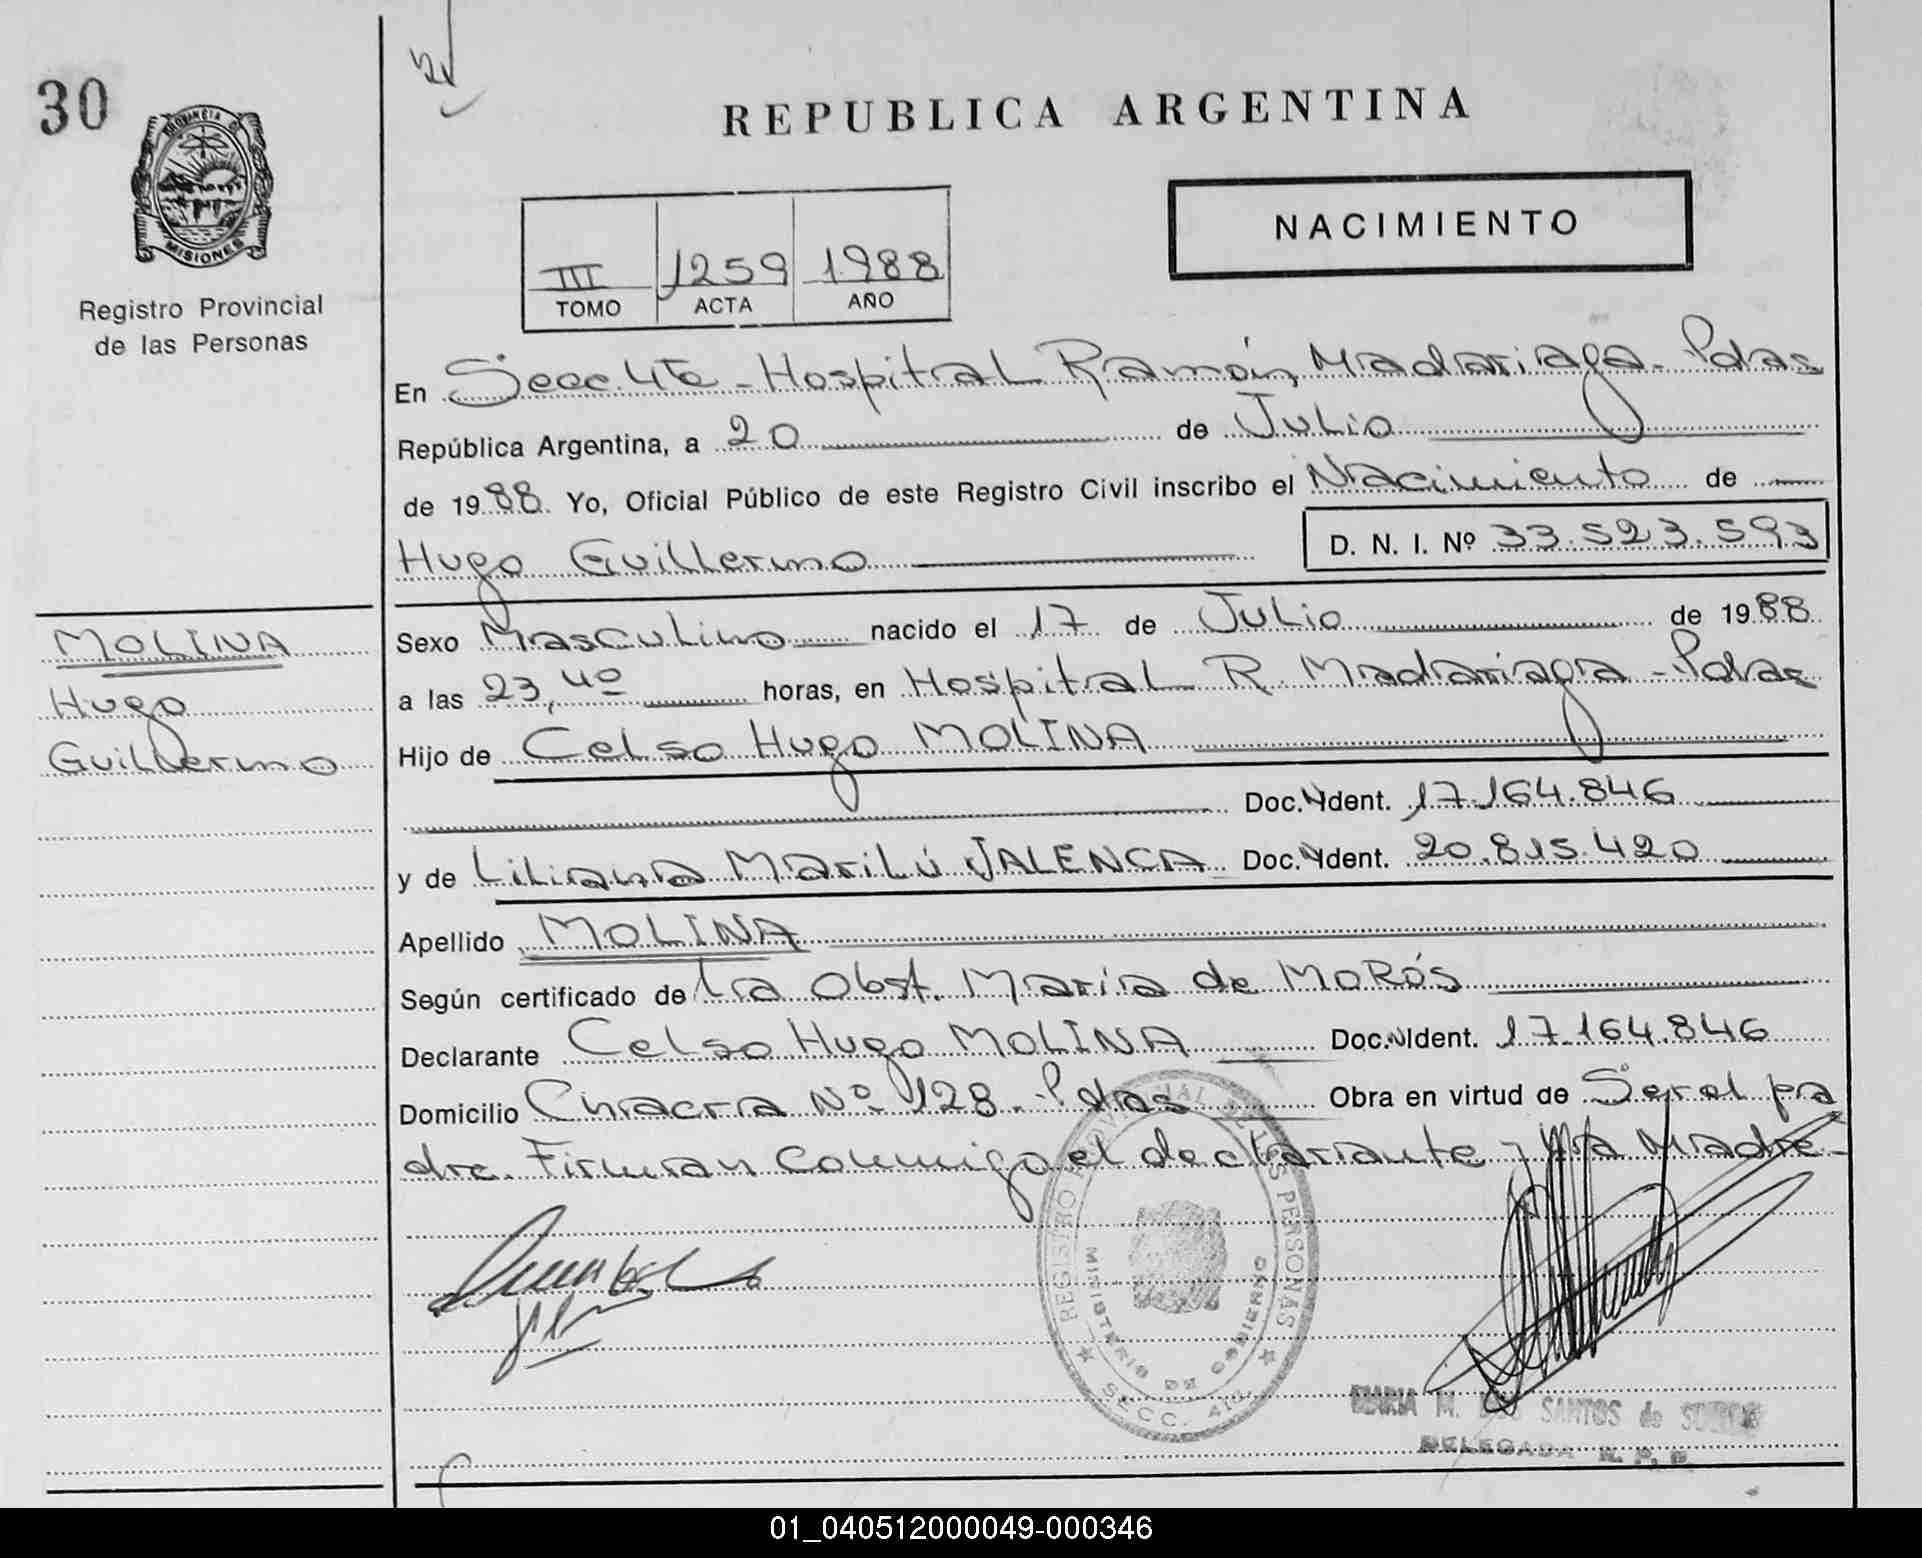 30
PROVINCIA DE
MISIONES
Registro Provincial
de las Personas
REPUBLICA ARGENTINA
NACIMIENTO
III 1259 1988
TOMO ACTA AÑO
En Secc. 4ta - Hospital Ramón Madariaga - Pdas
República Argentina, a 20 de Julio
de 1988 Yo, Oficial Público de este Registro Civil inscribo el Nacimiento de
Hugo Guillermo D. N. I. Nº 33.523.593
MOLINA
Hugo
Guillermo
Sexo Masculino nacido el 17 de Julio de 1988
a las 23,40 horas, en Hospital R. Madariaga - Pdas
Hijo de Celso Hugo MOLINA
Doc. Ident. 17.164.846
y de Liliana Marilú JALENCA Doc. Ident. 20.815.420
Apellido MOLINA
Según certificado de la Obst. María de MoRós
Declarante Celso Hugo MOLINA Doc. Ident. 17.164.846
Domicilio Chacra Nº 128. Pdas Obra en virtud de Ser el pa
dre. Firman conmigo el declarante y la Madre -
REGISTRO PROVINCIAL DE LAS PERSONAS
MINISTERIO DE GOBIERNO
SECC. 4ta.
MARIA M. DOS SANTOS de
DELEGADA R. P. P.
01_040512000049-000346